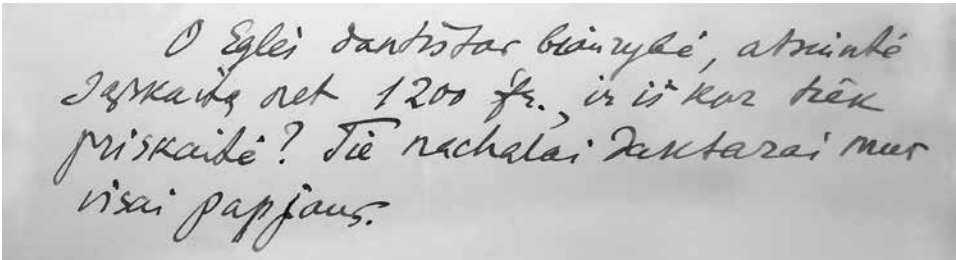 O Eglės dantistas biaurybė, atsiuntė
sąskaitą net 1200 fr., ir iš kur tiek
priskaitė? Tie nachalai daktarai mus
visai papjaus.